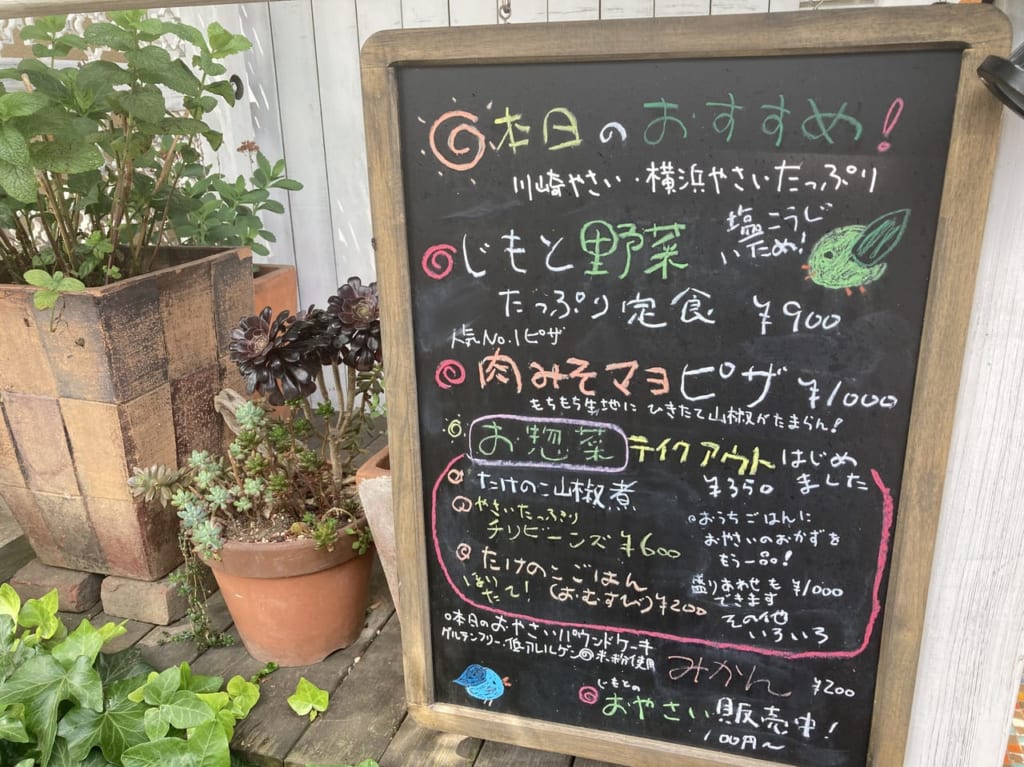 本日のおすすめ!
川崎やさい・横浜やさいたっぷり
じもと野菜
塩こうじ
いため!
たっぷり定食 ¥900
人気No.1ピザ
肉みそマヨピザ ¥1000
もちもち生地に ひきたて山椒がたまらん!
お惣菜 テイクアウト はじめ
ました
たけのこ山椒煮 ¥350
やさいたっぷり
チリビーンズ ¥600
たけのこごはん
(おむすび) ¥200
たて!
おうちごはんに
おやさいのおかずを
もう一品!
盛りあわせも ¥1000
できます
その他
いろいろ
本日のおやさいパウンドケーキ
グルテンフリー・低アレルゲンの米粉使用
みかん ¥200
じもとの
おやさい 販売中!
100円〜